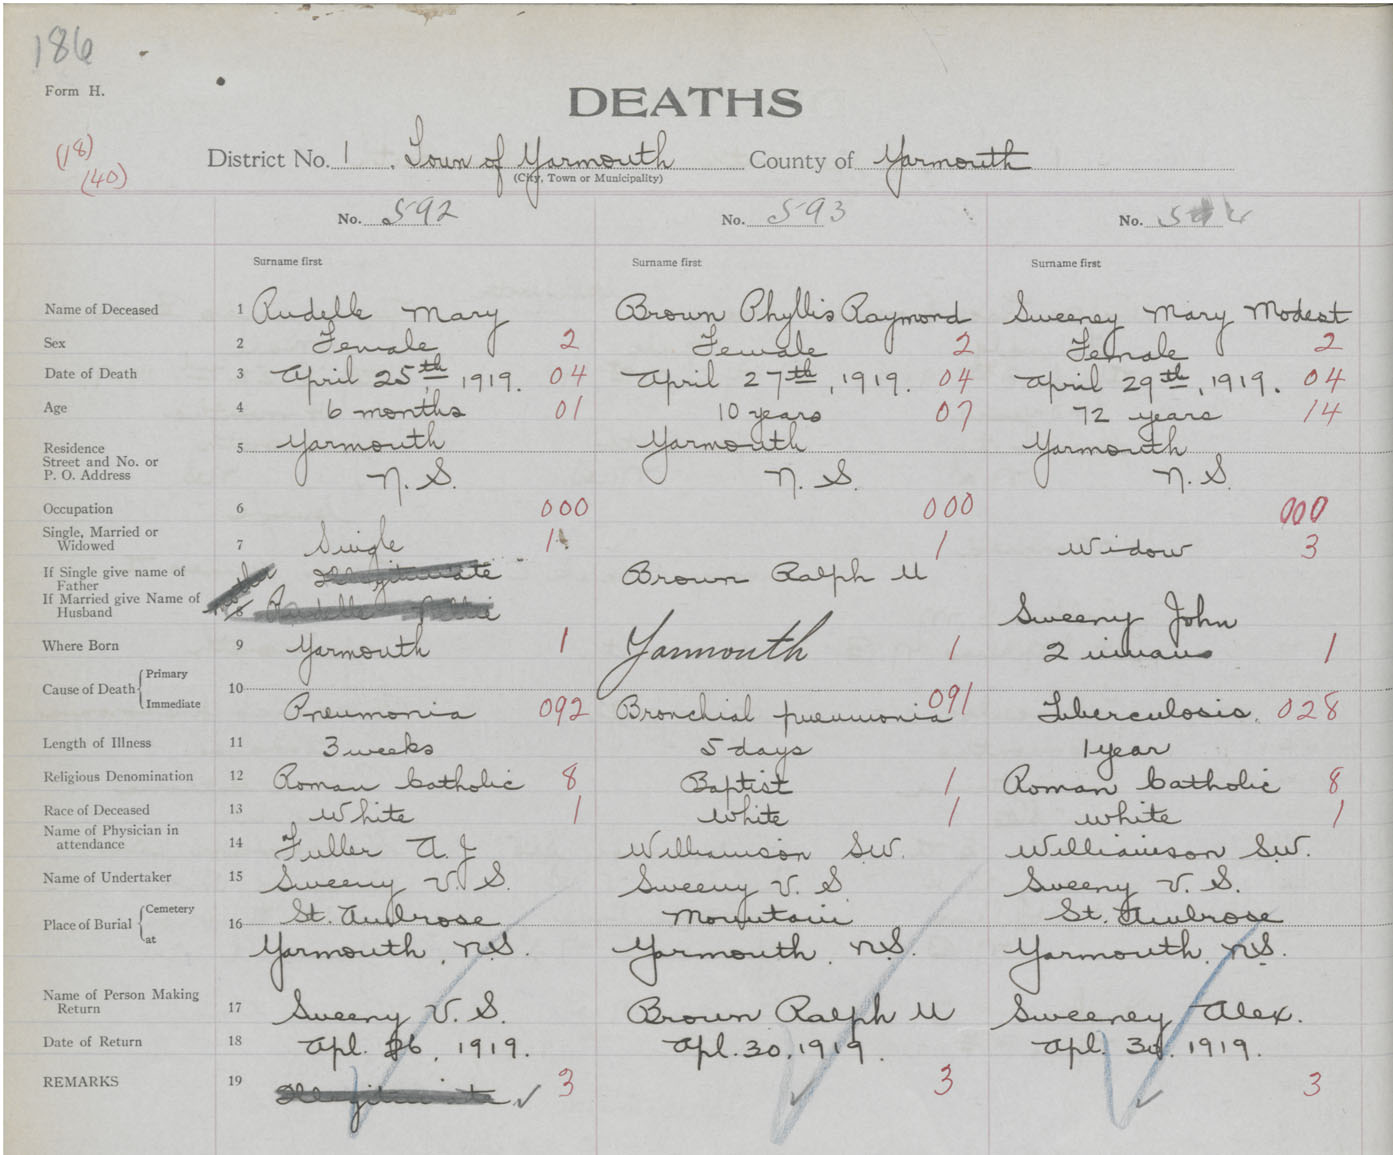 186
Form H.
DEATHS
(18)
(40)
District No. 1. Town of Yarmouth County of Yarmouth
(City, Town or Municipality)
No. 592 No. 593 No.
Surname first Surname first Surname first
Name of Deceased 1 Rudelle Mary Brown Phyllis Raymond Sweeney Mary Modest
Sex 2 Female 2 Female 2 Female 2
Date of Death 3 April 25th, 1919. 04 April 27th, 1919. 04 April 29th, 1919. 04
Age 4 6 months 01 10 years 07 72 years 14
Residence 5 Yarmouth Yarmouth Yarmouth
Street and No. or
P. O. Address N. S. N. S. N. S.
Occupation 6 000 000 000
Single, Married or
Widowed 7 Single 1 1 Widow 3
If Single give name of
Father Illegitimate Brown Ralph M
If Married give Name of
Husband 8 Rudelle Sweeny John
Where Born 9 Yarmouth 1 Yarmouth 1 1
Cause of Death Primary 10
Immediate Pneumonia 092 Bronchial pneumonia 091 Tuberculosis. 028
Length of Illness 11 3 weeks 5 days 1 year
Religious Denomination 12 Roman Catholic 8 Baptist 1 Roman Catholic 8
Race of Deceased 13 White 1 White 1 White 1
Name of Physician in
attendance 14 Fuller A. J Williamson S.W. Williamson S.W.
Name of Undertaker 15 Sweeny V. S. Sweeny V. S. Sweeny V. S.
Place of Burial Cemetery 16 St. Ambrose Mountain St. Ambrose
at Yarmouth, N.S. Yarmouth, N.S. Yarmouth, N.S.
Name of Person Making
Return 17 Sweeny V. S. Brown Ralph M Sweeney Alex.
Date of Return 18 Apl. 26, 1919. Apl. 30, 1919. Apl. 30, 1919.
REMARKS 19 Illegitimate 3 3 3